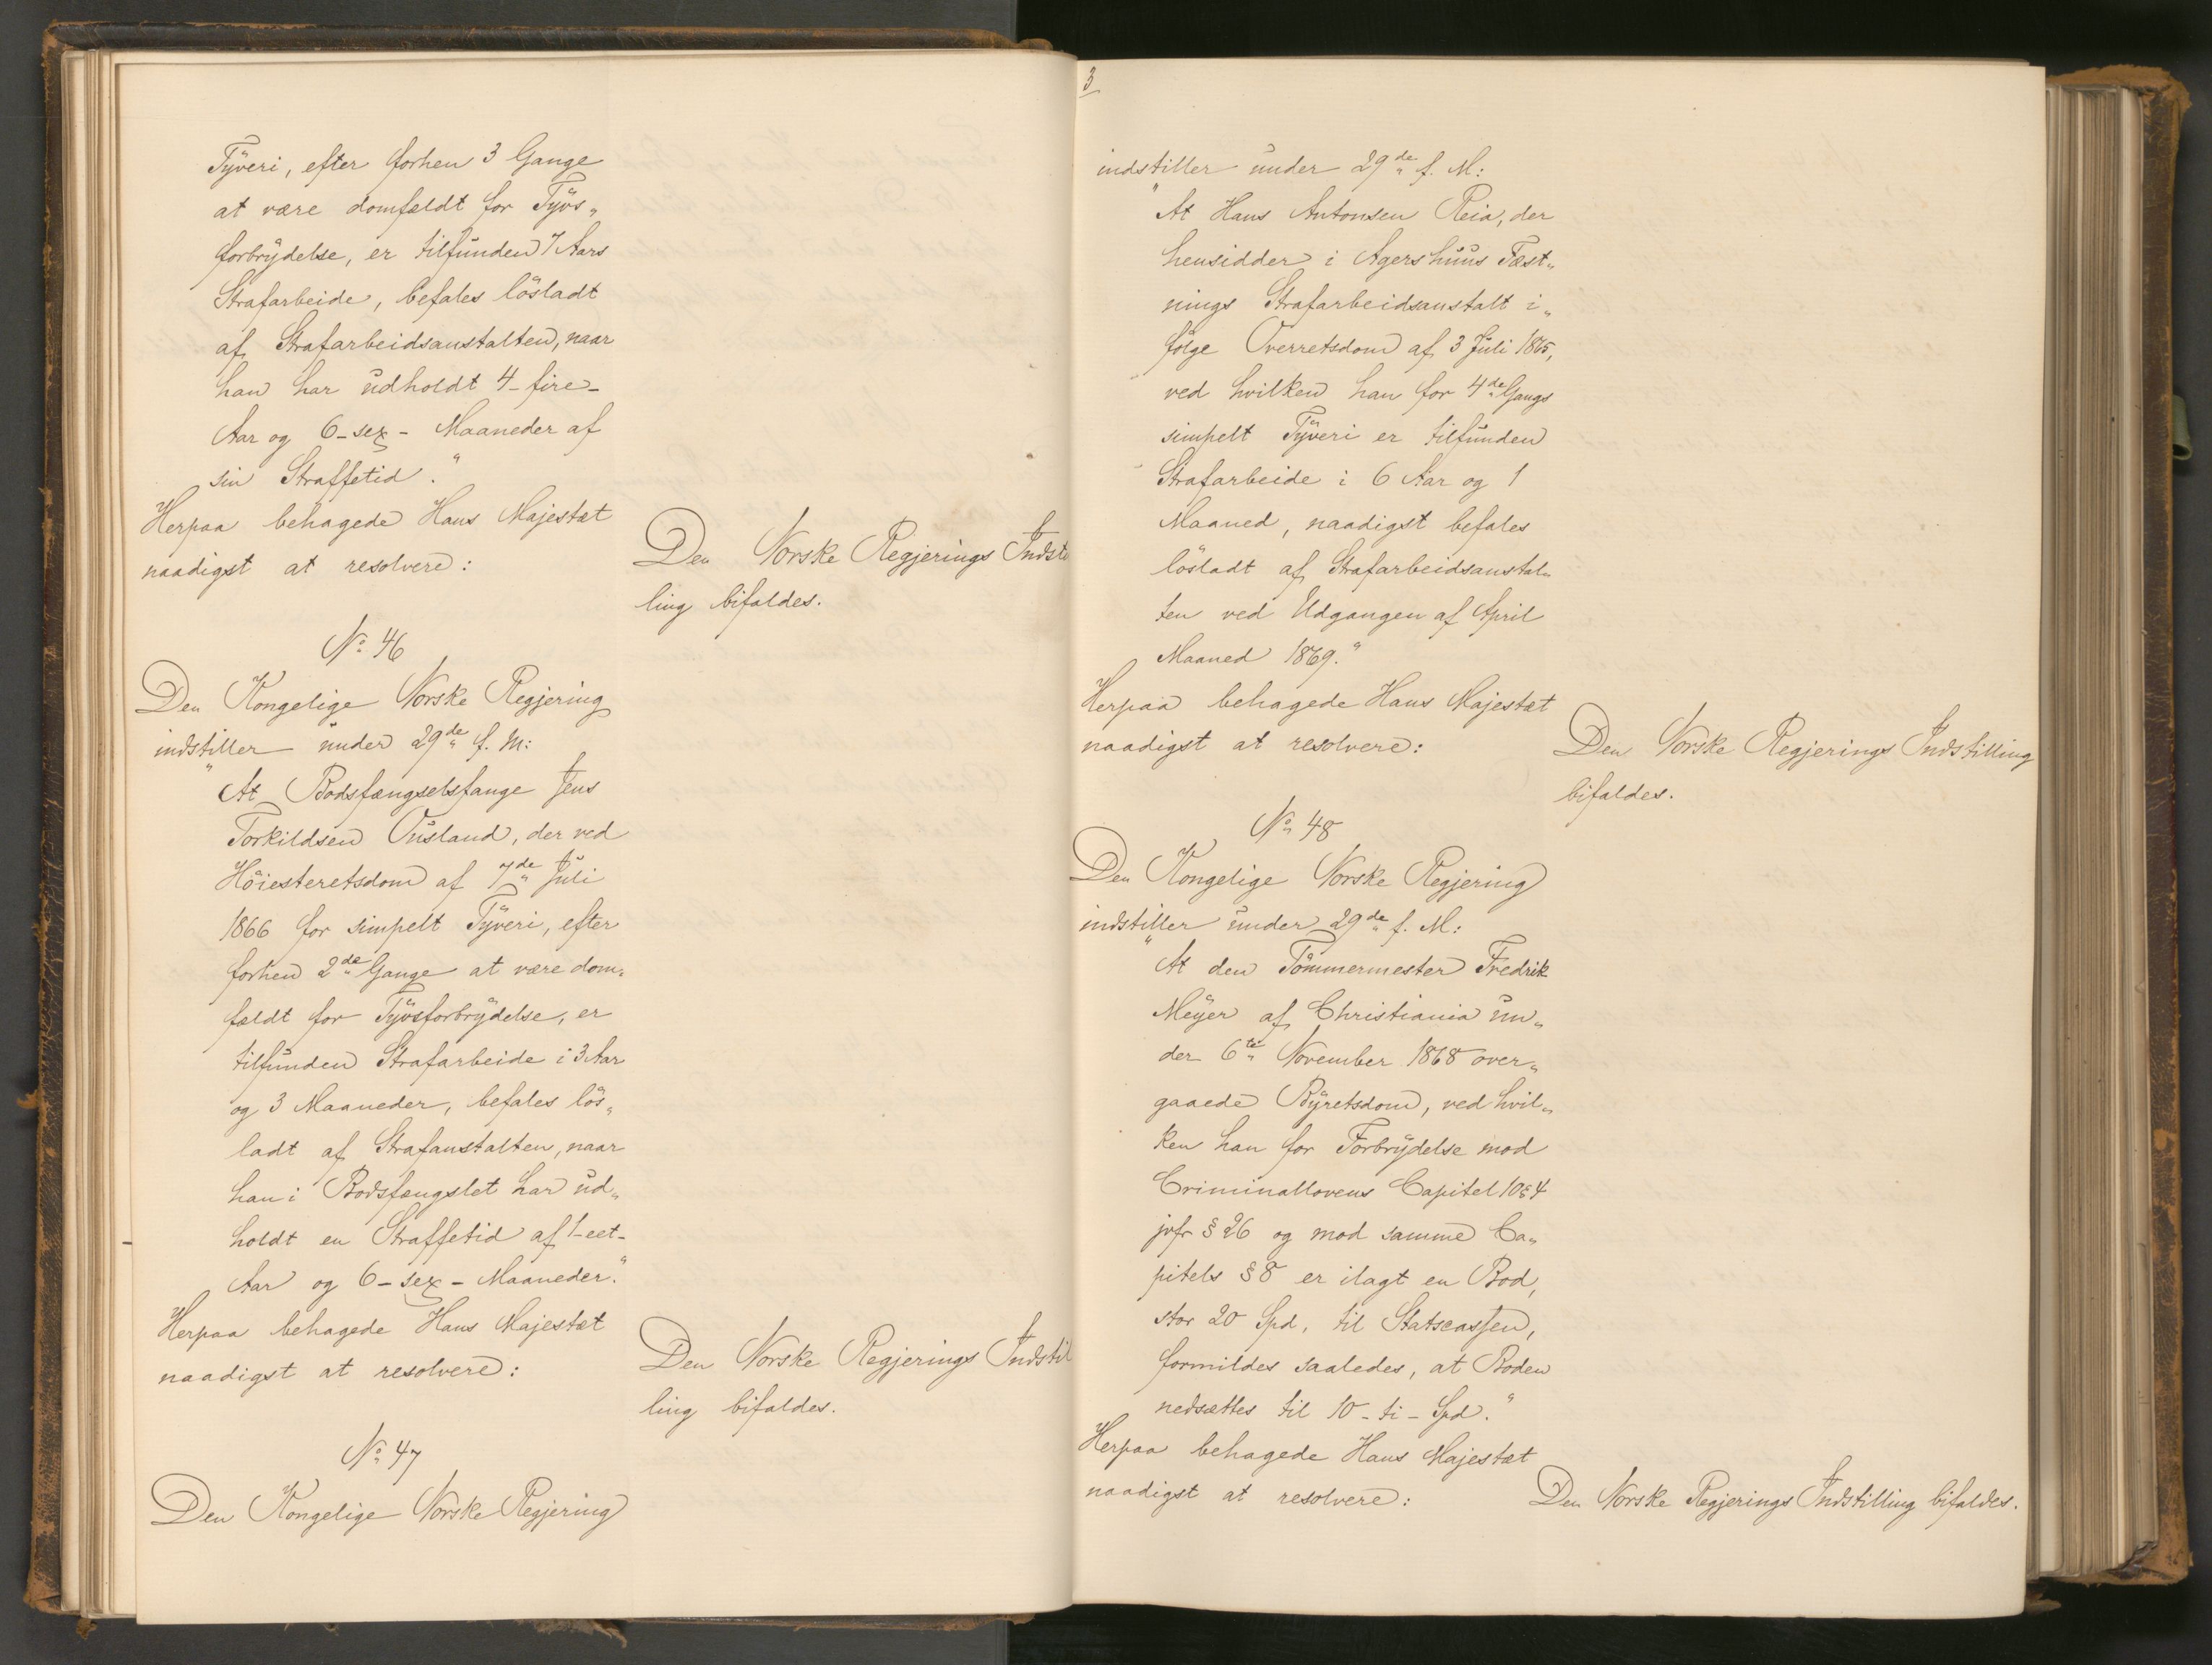 Tyveri, efter forhen 3 Gange
at være domfældt for Tyvs„
forbrydelse, er tilfunden 7 Aars
Strafarbeide, befales lösladt
af Strafarbeidsanstalten, naar
han har udholdt 4 - fire -
Aar og 6 - sex - Maaneder af
sin Straffetid."
Herpaa behagede Hans Majestæt
naadigst at resolvere:
Den Norske Regjerings Indstil
ling bifaldes.
No 46
Den Kongelige Norske Regjering
indstiller under 29de f. M:
"At Bodsfængselsfange Jens
Torkildsen Ousland, der ved
Höiesteretsdom af 7de Juli
1866 for simpelt Tyveri, efter
forhen 2de Gange at være dom„
fældt for Tyvsforbrydelse, er
tilfunden Strafarbeide i 3 Aar
og 3 Maaneder, befales lös„
ladt af Strafanstalten, naar
han i Bodsfængslet har ud„
holdt en Straffetid af 1 - eet -
Aar og 6 - sex - Maaneder."
Herpaa behagede Hans Majestæt
naadigst at resolvere:
Den Norske Regjerings Indstil
ling bifaldes.
No 47
Den Kongelige Norske Regjering
3
indstiller under 29de f. M:
"At Hans Antonsen Reia, der
hensidder i Agershuus Fæst„
nings Strafarbeidsanstalt i„
fölge Overretsdom af 3 Juli 1865,
ved hvilken han for 4de Gangs
simpelt Tyveri er tilfunden
Strafarbeide i 6 Aar og 1
Maaned, naadigst befales
lösladt af Strafarbeidsanstal„
ten ved Udgangen af April
Maaned 1869."
Herpaa behagede Hans Majestæt
naadigst at resolvere:
Den Norske Regjerings Indstilling
bifaldes.
No 48
Den Kongelige Norske Regjering
indstiller under 29de f. M:
"At den Tömmermester Fredrik
Meyer af Christiania un„
der 6te November 1868 over„
gaaede Byretsdom, ved hvil„
ken han for Forbrydelse mod
Criminallovens Capitel 10 § 4
jvfr § 26 og mod samme Ca„
pitels § 8 er ilagt en Bod,
stor 20 Spd, til Statscassen,
formildes saaledes, at Boden
nedsættes til 10 - ti - Spd."
Herpaa behagede Hans Majestæt
naadigst at resolvere:
Den Norske Regjerings Indstilling bifaldes.